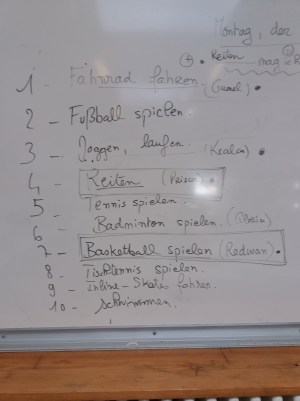 Montag, der
Reiten mag ich
1 - Fahrrad fahren. •
2 - Fußball spielen
3 - Joggen, laufen. •
4 - Reiten •
5 - Tennis spielen.
6 - Badminton spielen.
7 - Basketball spielen (Redwan) •
8 - Tischtennis spielen.
9 - Inline-Skate fahren.
10 - schwimmen.